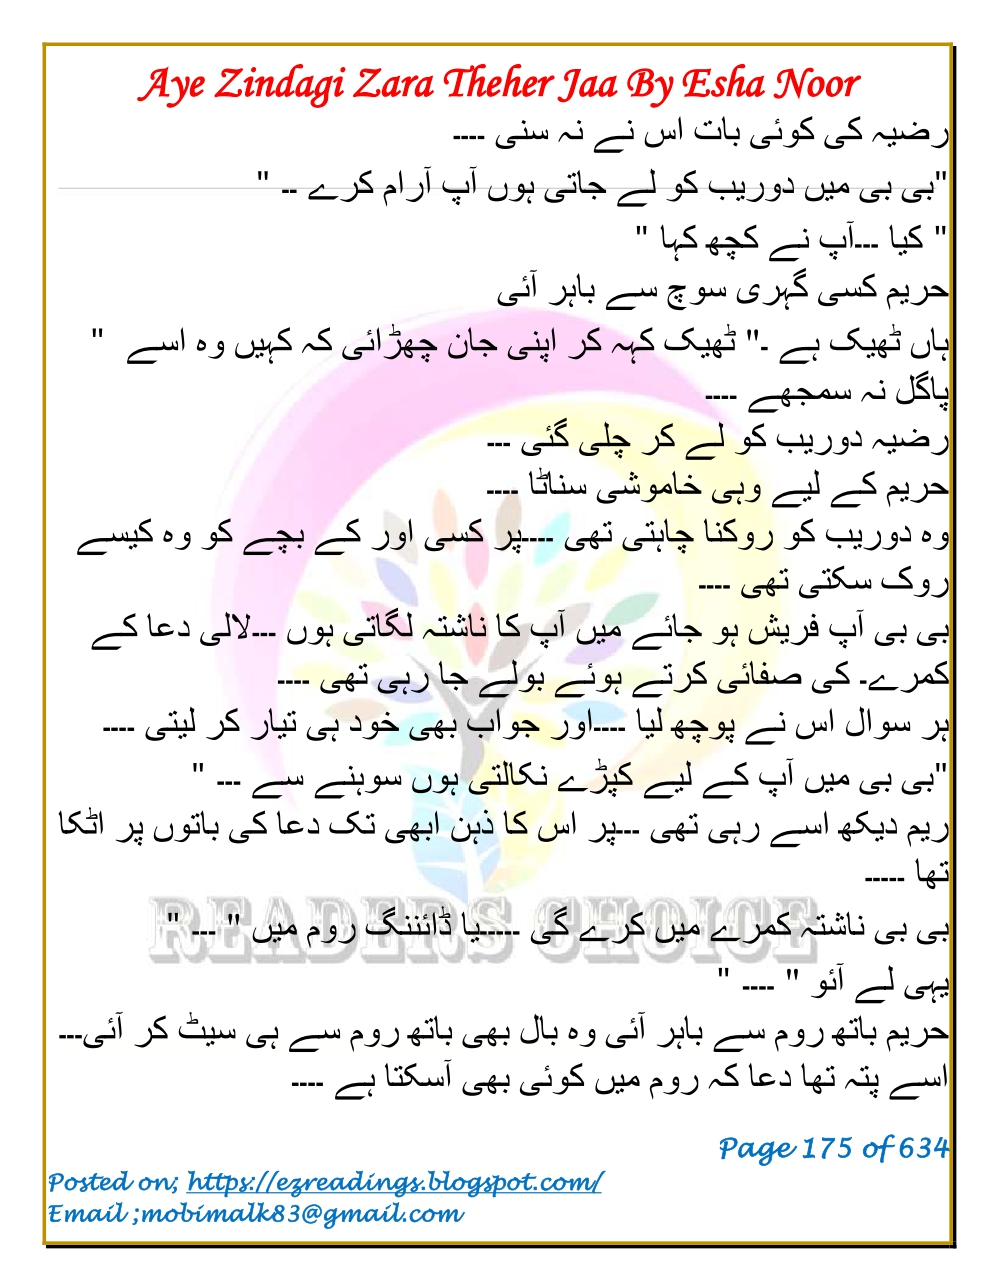 Aye Zindagi Zara Theher Jaa By Esha Noor
رضیہ کی کوئی بات اس نے نہ سنی ----
"بی بی میں دوریب کو لے جاتی ہوں آپ آرام کرے -- "
" کیا ---آپ نے کچھ کہا "
حریم کسی گہری سوچ سے باہر آئی
ہاں ٹھیک ہے ۔" ٹھیک کہہ کر اپنی جان چھڑائی کہ کہیں وہ اسے "
پاگل نہ سمجھے ----
رضیہ دوریب کو لے کر چلی گئی ---
حریم کے لیے وہی خاموشی سناٹا ----
وہ دوریب کو روکنا چاہتی تھی ----پر کسی اور کے بچے کو وہ کیسے
روک سکتی تھی ----
بی بی آپ فریش ہو جائے میں آپ کا ناشتہ لگاتی ہوں ---لالی دعا کے
کمرے۔ کی صفائی کرتے ہوئے بولے جا رہی تھی ----
ہر سوال اس نے پوچھ لیا ----اور جواب بھی خود ہی تیار کر لیتی ----
"بی بی میں آپ کے لیے کپڑے نکالتی ہوں سوہنے سے --- "
ریم دیکھ اسے رہی تھی ---پر اس کا ذہن ابھی تک دعا کی باتوں پر اٹکا
تھا -----
بی بی ناشتہ کمرے میں کرے گی -----یا ڈائننگ روم میں " ---"
یہی لے آئو " ---- "
حریم باتھ روم سے باہر آئی وہ بال بھی باتھ روم سے ہی سیٹ کر آئی---
اسے پتہ تھا دعا کہ روم میں کوئی بھی آسکتا ہے ----
READERS CHOICE
Page 175 of 634
Posted on; https://ezreadings.blogspot.com/
Email ;mobimalk83@gmail.com